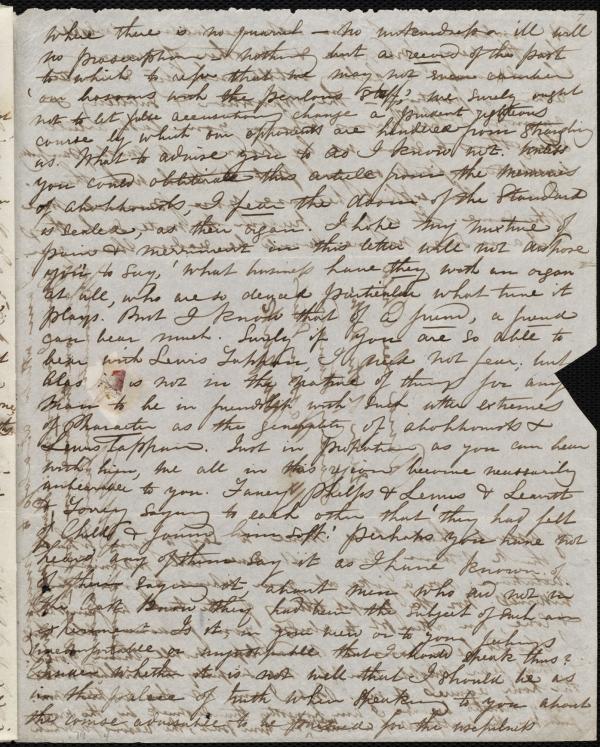 where there is no quarrel – no unkindness or ill will
no proscription – nothing but a record of the past
to which to refer that we may not even number
'our house with the parlous stuff,' we surely ought
not to let false accusations change a prudent righteous
course by which our opponents are hindered from strangling
us. What to advise you to do I know not. Unless
you could obliterate this article from the memories
of abolitionists, I fear the doom of the Standard
is sealed, as their organ. I hope my mixture of
pain & merriment in this letter will not dispose
you to say, 'what business have they with an organ
at all, who are so deuced particular what tune it
plays.' But I know that of a friend, a friend
can bear much. Surely if you are so able to
bear with Lewis Tappan I need not fear; but
alas it is not in the nature of things for any
man to be in friendship with such utter extremes
of character as the generality of abolitionists &
Lewis Tappan. Just in proportion as you can bear
with him, we all in this region become necessarily
unbearable to you. Fancy Phelps & Lewis & Leavitt
& Torrey saying to each other that 'they had felt
of Child & found him soft.' perhaps you have not
heard any of them say it as I have known of
them saying it, about men who did not in
the least know they had been the subject of such an
experiment. Is it in your view or to your feelings
uncharitable or inhospitable that I should speak thus?
Consider whether it is not well that I should be as
in the palace of truth when speaking to you about
the course advisable to be pursued for the usefulness